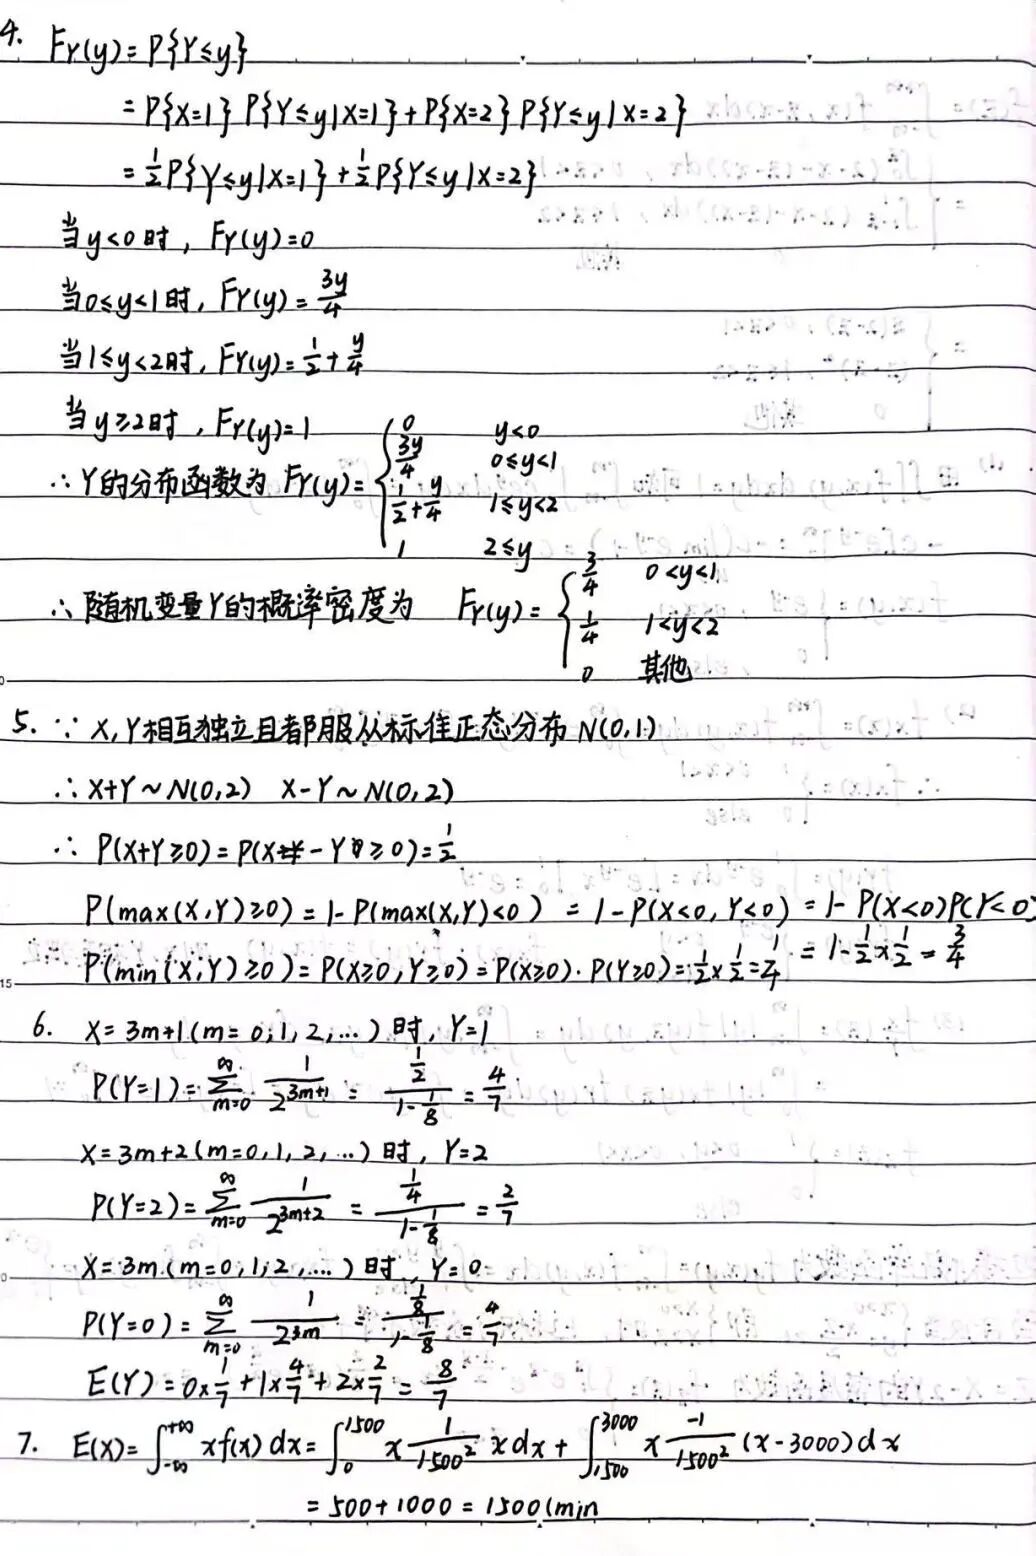 4. F_Y(y)=P{Y≤y}
=P{X=1}P{Y≤y|X=1}+P{X=2}P{Y≤y|X=2}
=1/2P{Y≤y|X=1}+1/2P{Y≤y|X=2}
当y<0时, F_Y(y)=0
当0≤y<1时, F_Y(y)=3y/4
当1≤y<2时, F_Y(y)=1/2+y/4
当y≥2时, F_Y(y)=1
∴Y的分布函数为 F_Y(y)={0 y<0
3y/4 0≤y<1
1/2+y/4 1≤y<2
1 2≤y
∴随机变量Y的概率密度为 F_Y(y)={3/4 0<y<1
1/4 1<y<2
0 其他
5. ∵X,Y相互独立且都服从标准正态分布N(0,1)
∴X+Y~N(0,2) X-Y~N(0,2)
∴ P(X+Y≥0)=P(X-Y≥0)=1/2
P(max(X,Y)≥0)=1-P(max(X,Y)<0) =1-P(X<0,Y<0)=1-P(X<0)P(Y<0)
=1-1/2×1/2=3/4
P(min(X,Y)≥0)=P(X≥0,Y≥0)=P(X≥0)·P(Y≥0)=1/2×1/2=1/4
6. X=3m+1(m=0,1,2,…)时, Y=1
P(Y=1)=∑_{m=0}^{∞} 1/2^{3m+1} = (1/2)/(1-1/8) = 4/7
X=3m+2(m=0,1,2,…)时, Y=2
P(Y=2)=∑_{m=0}^{∞} 1/2^{3m+2} = (1/4)/(1-1/8) = 2/7
X=3m(m=0,1,2,…)时, Y=0
P(Y=0)=∑_{m=0}^{∞} 1/2^{3m} = (1/8)/(1-1/8) = 4/7
E(Y)=0×1/7+1×4/7+2×2/7=8/7
7. E(X)=∫_{-∞}^{+∞}xf(x)dx=∫_0^{1500} x 1/1500² x dx+∫_{1500}^{3000} x -1/1500² (x-3000)dx
=500+1000=1500(min